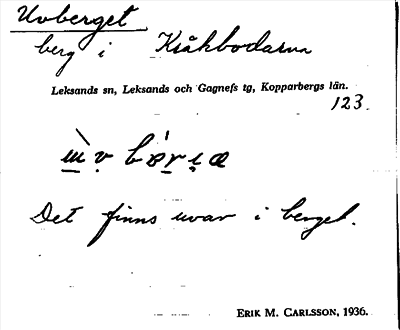 Uvberget
berg i Kråkbodarna
Leksands sn, Leksands och Gagnefs tg, Kopparbergs län.
123.
Det finns uvar i berget.
ERIK M. CARLSSON, 1936.